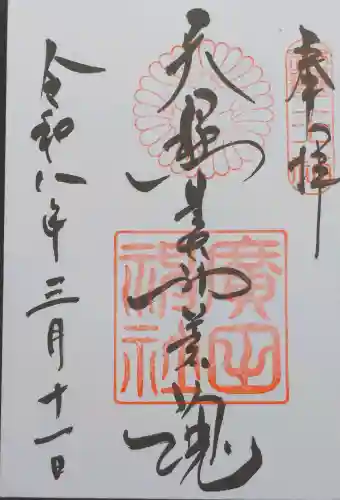 奉拝
天照皇大神荒魂
廣田神社
令和八年三月十一日